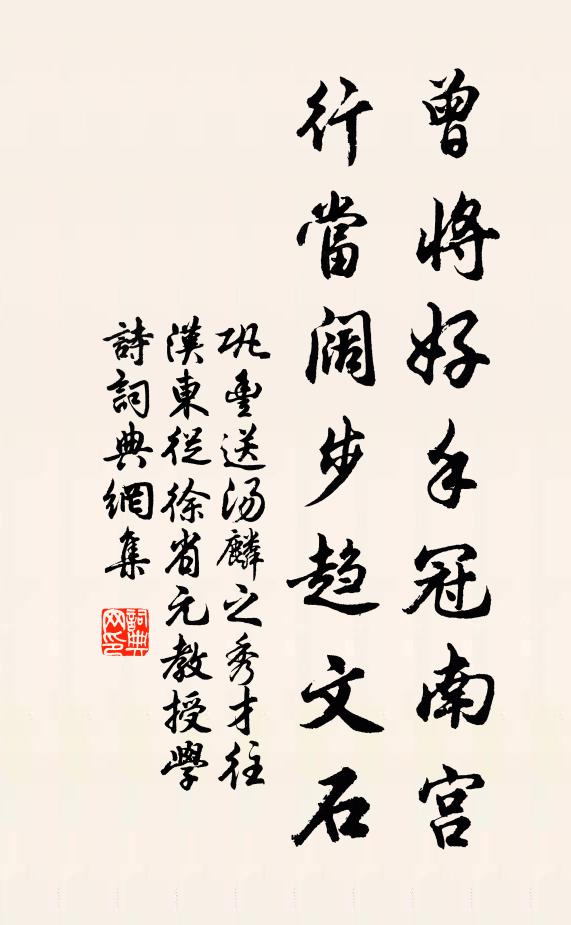 曾將好手冠南宮
行當闊步趨文石
巩豐送湯麟之秀才往
漢東從徐省元教授學
詩詞典網集
詞典
网印